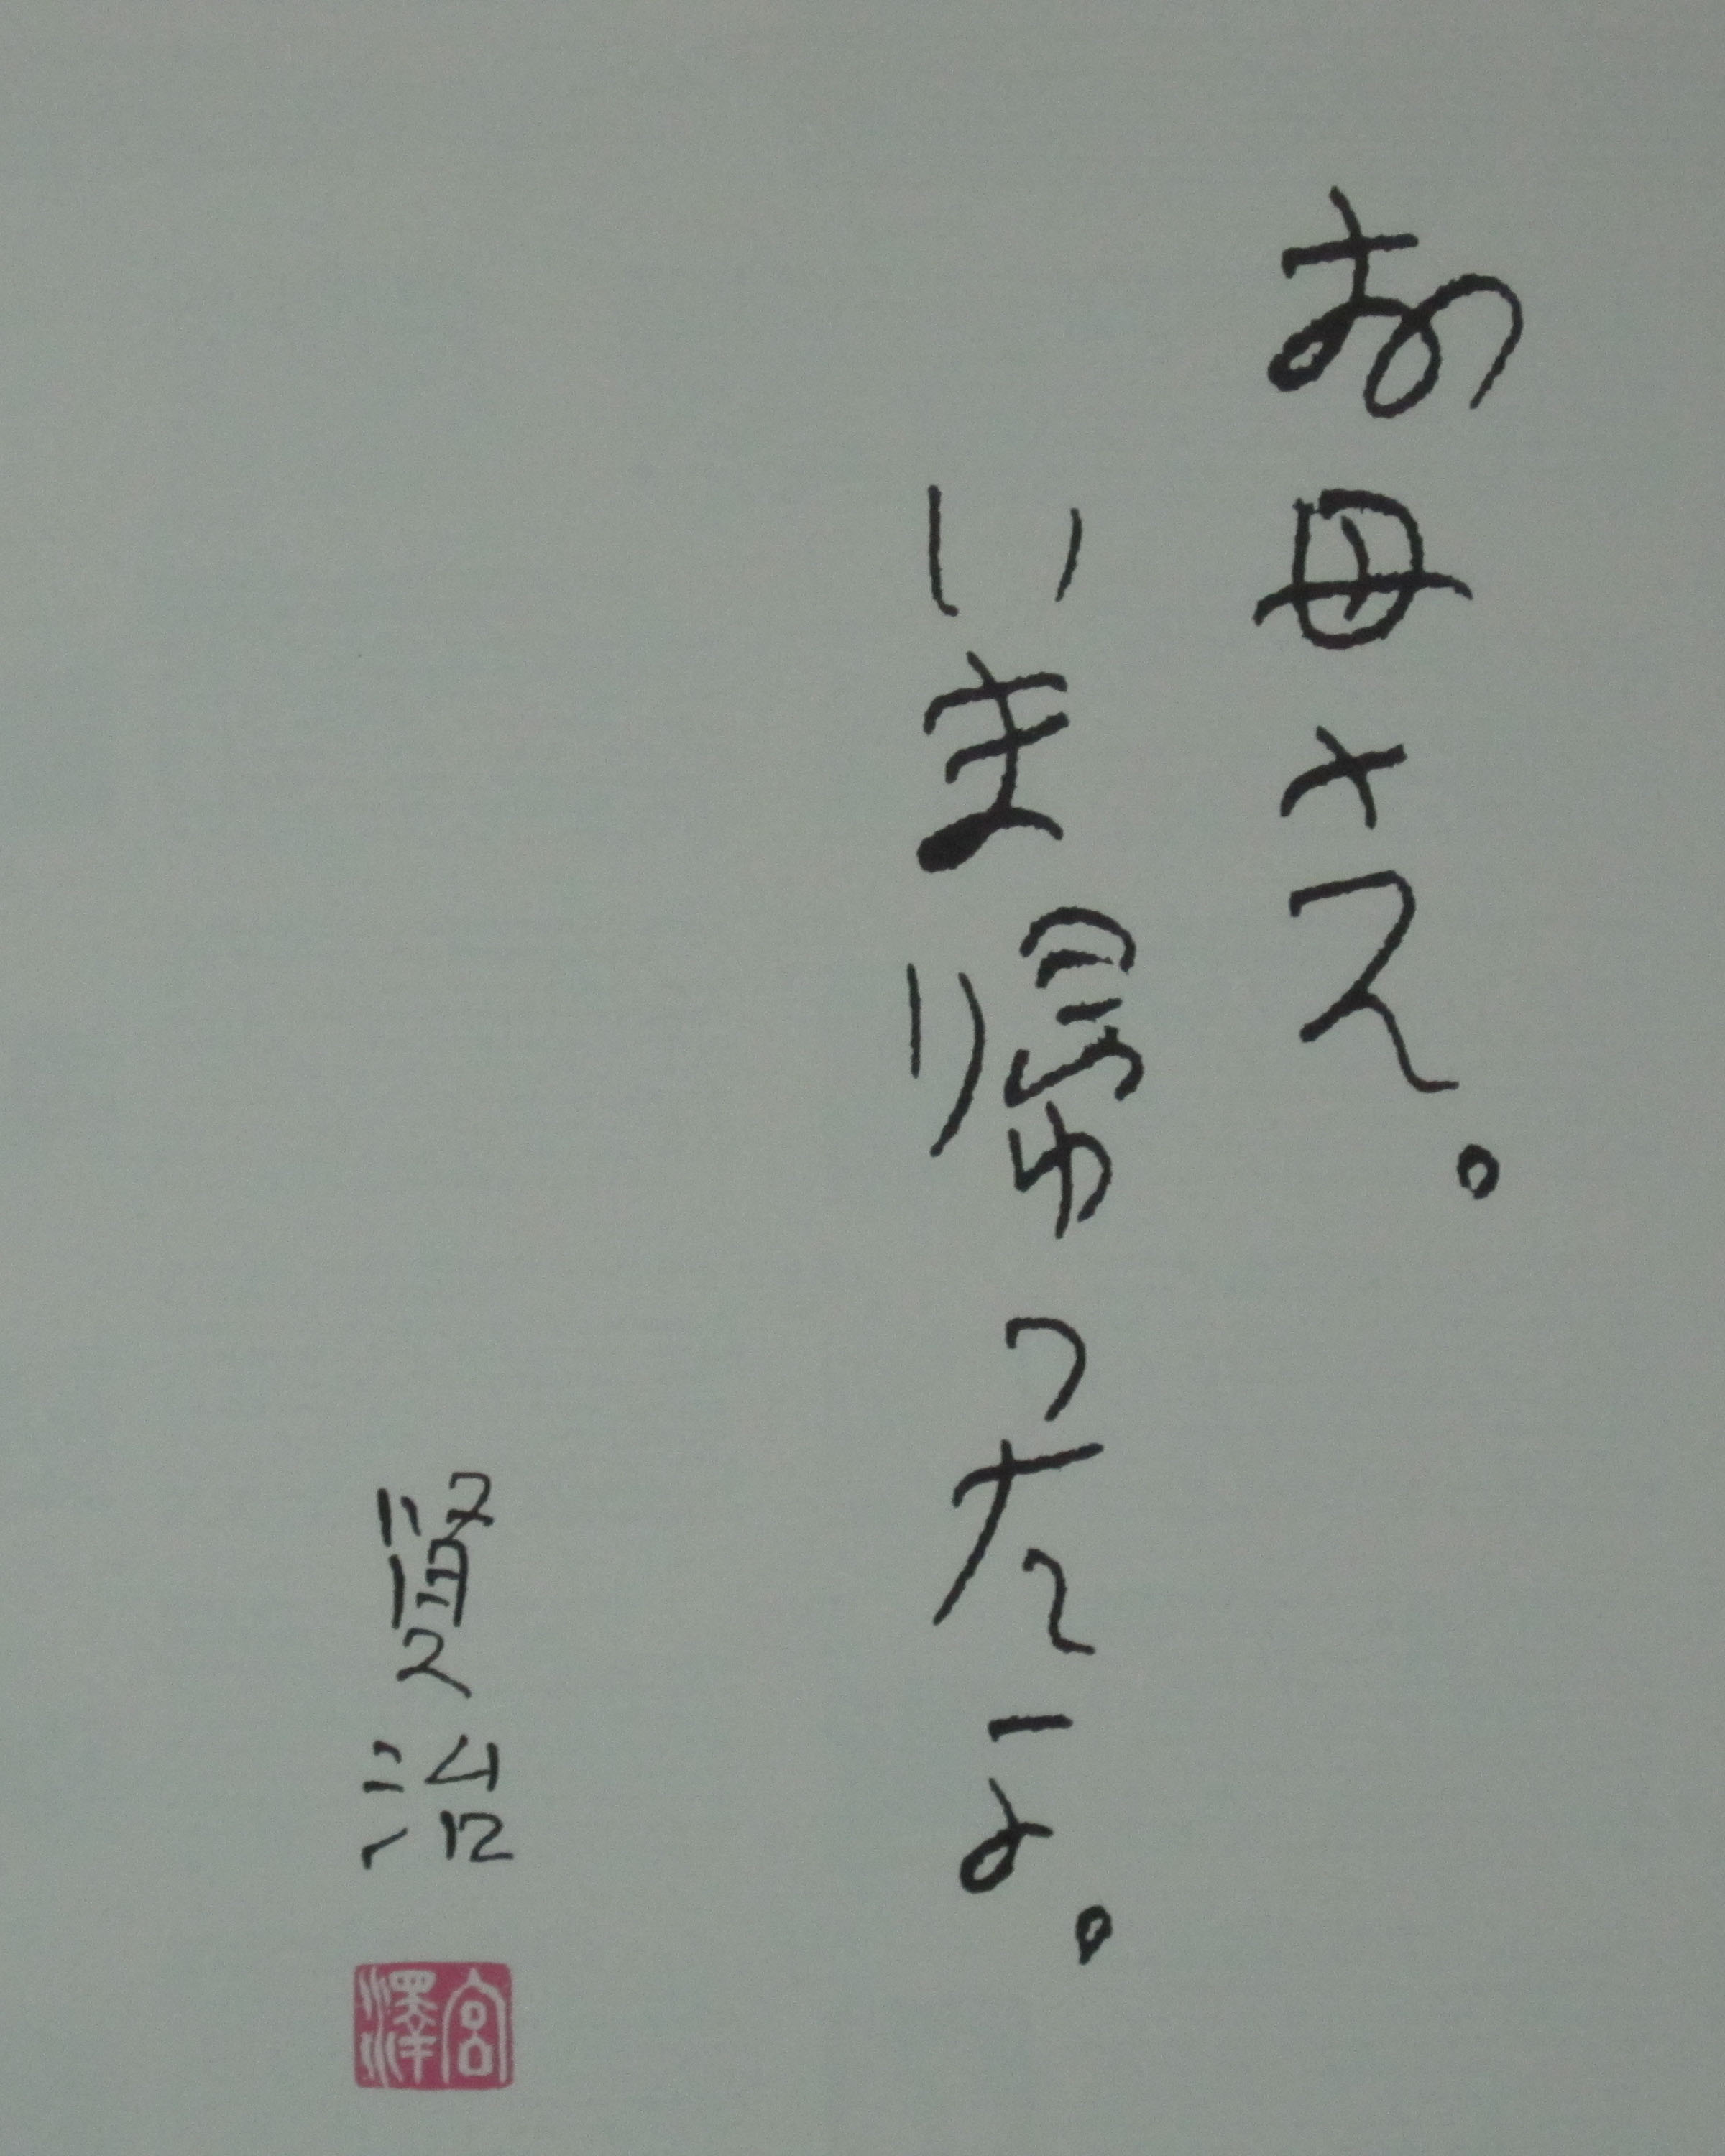 お母さん。
いま帰ったよ。
賢治
宮澤